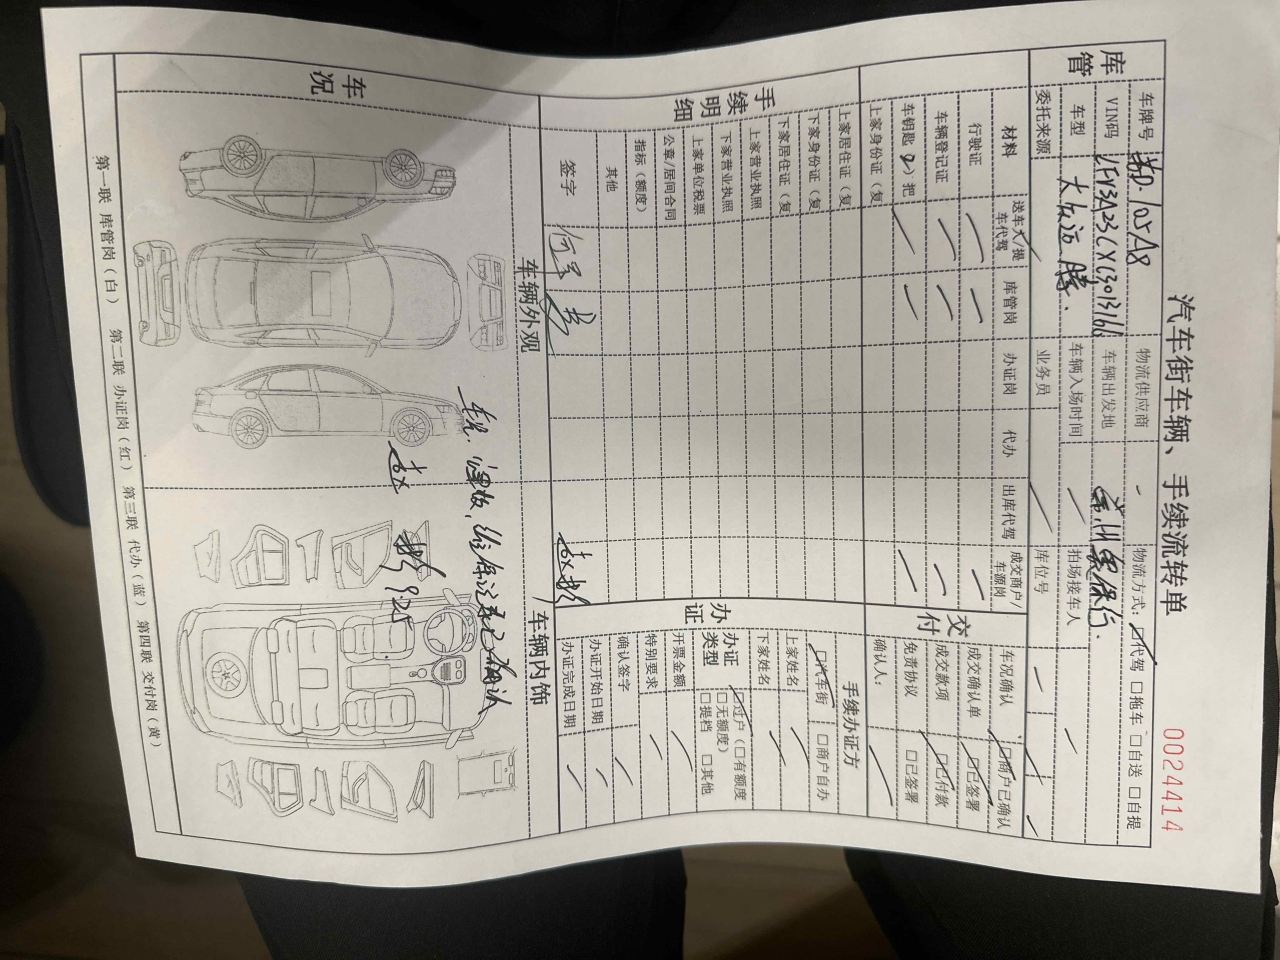 汽车街车辆、手续流转单
0024414
库管
车牌号 物流供应商 - 物流方式: □代驾 □拖车 □自送 □自提
VIN码 车辆出发地
车型 大众迈腾. 车辆入场时间 拍场接车人
委托来源 业务员 库位号
手续明细
材料 送车人/提车代驾 库管岗 办证岗 代办 出库代驾 成交商户/车源岗
行驶证
车辆登记证
车钥匙( 2 )把
上家身份证(复
上家居住证(复
下家身份证(复
下家居住证(复
上家营业执照
下家营业执照
上家单位税票
公章/居间合同
指标(额度)
其他
签字
交付
车况确认 □商户已确认
成交确认单 □已签署
成交款项 □已付款
免责协议 □已签署
确认人:
办证
手续办证方
□汽车街 □商户自办
上家姓名
下家姓名
办证类型 □过户(□有额度 □无额度) □提档 □其他
开票金额
特别要求
确认签字
办证开始日期
办证完成日期
车况
车辆外观
车辆内饰
第一联 库管岗(白) 第二联 办证岗(红) 第三联 代办(蓝) 第四联 交付岗(黄)